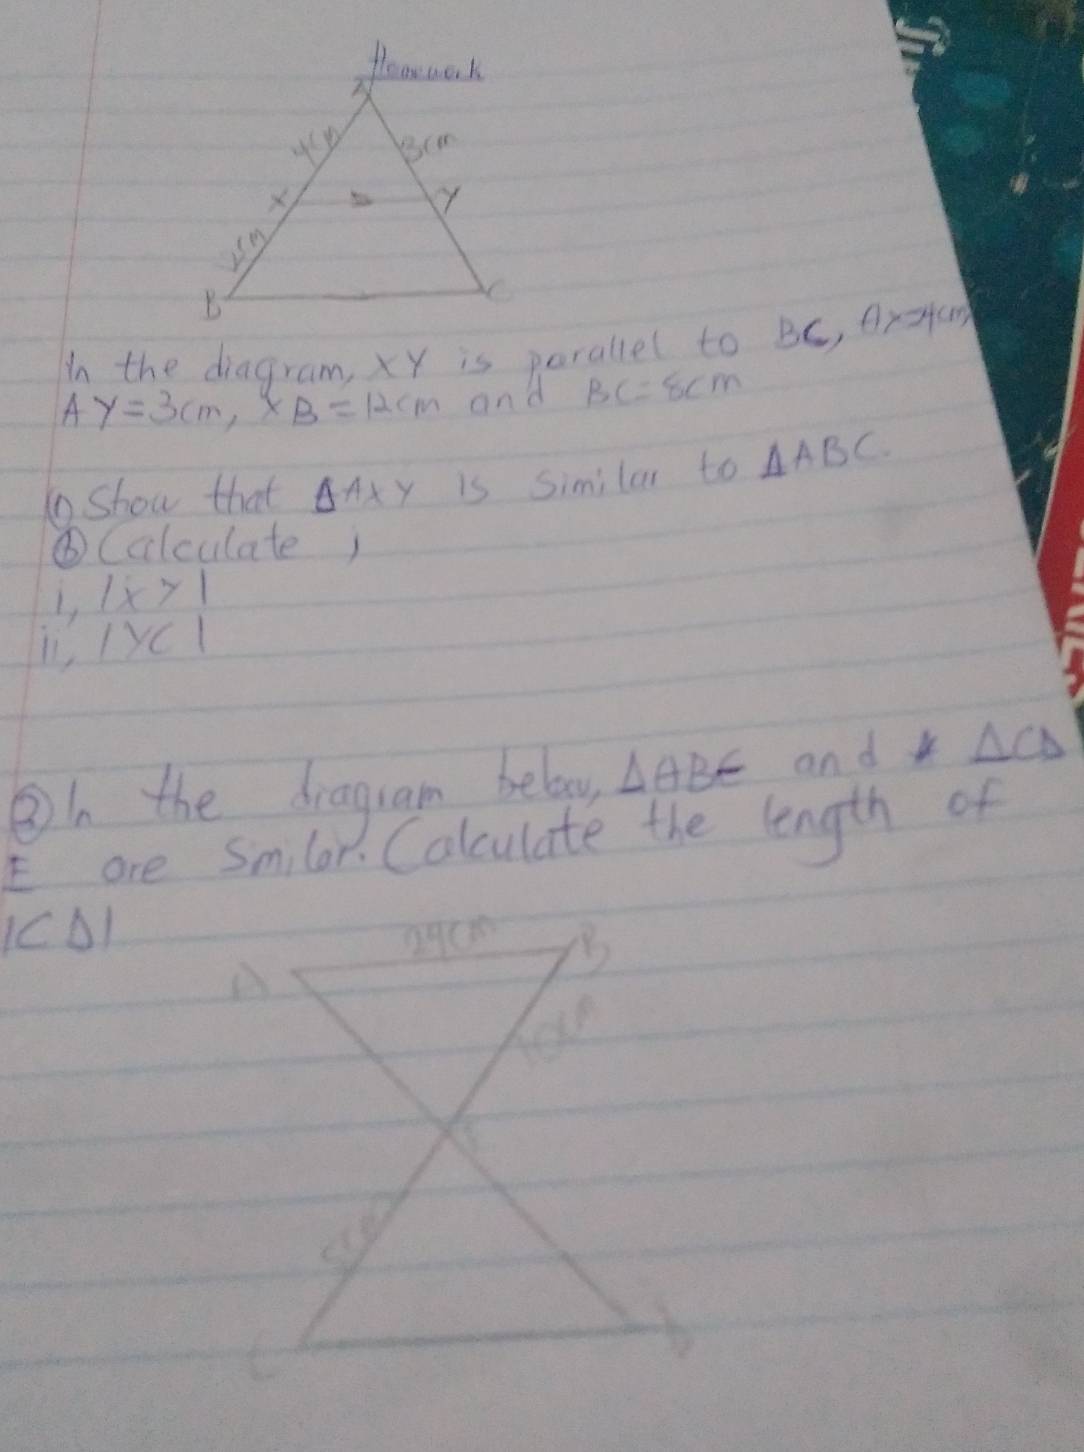 Homework
A
4cm
3cm
X
Y
12cm
B
C
In the diagram, XY is parallel to BC, AX=4cm,
AY=3cm, XB=12cm and BC=8cm
① Show that ΔAXY is similar to ΔABC.
ⓑ Calculate ;
i, |XY|
ii, |YC|
② In the diagram below, ΔABE and ΔCD
E are smilar. Calculate the length of
|CD|
A
B
10cm
E
5cm
C
D